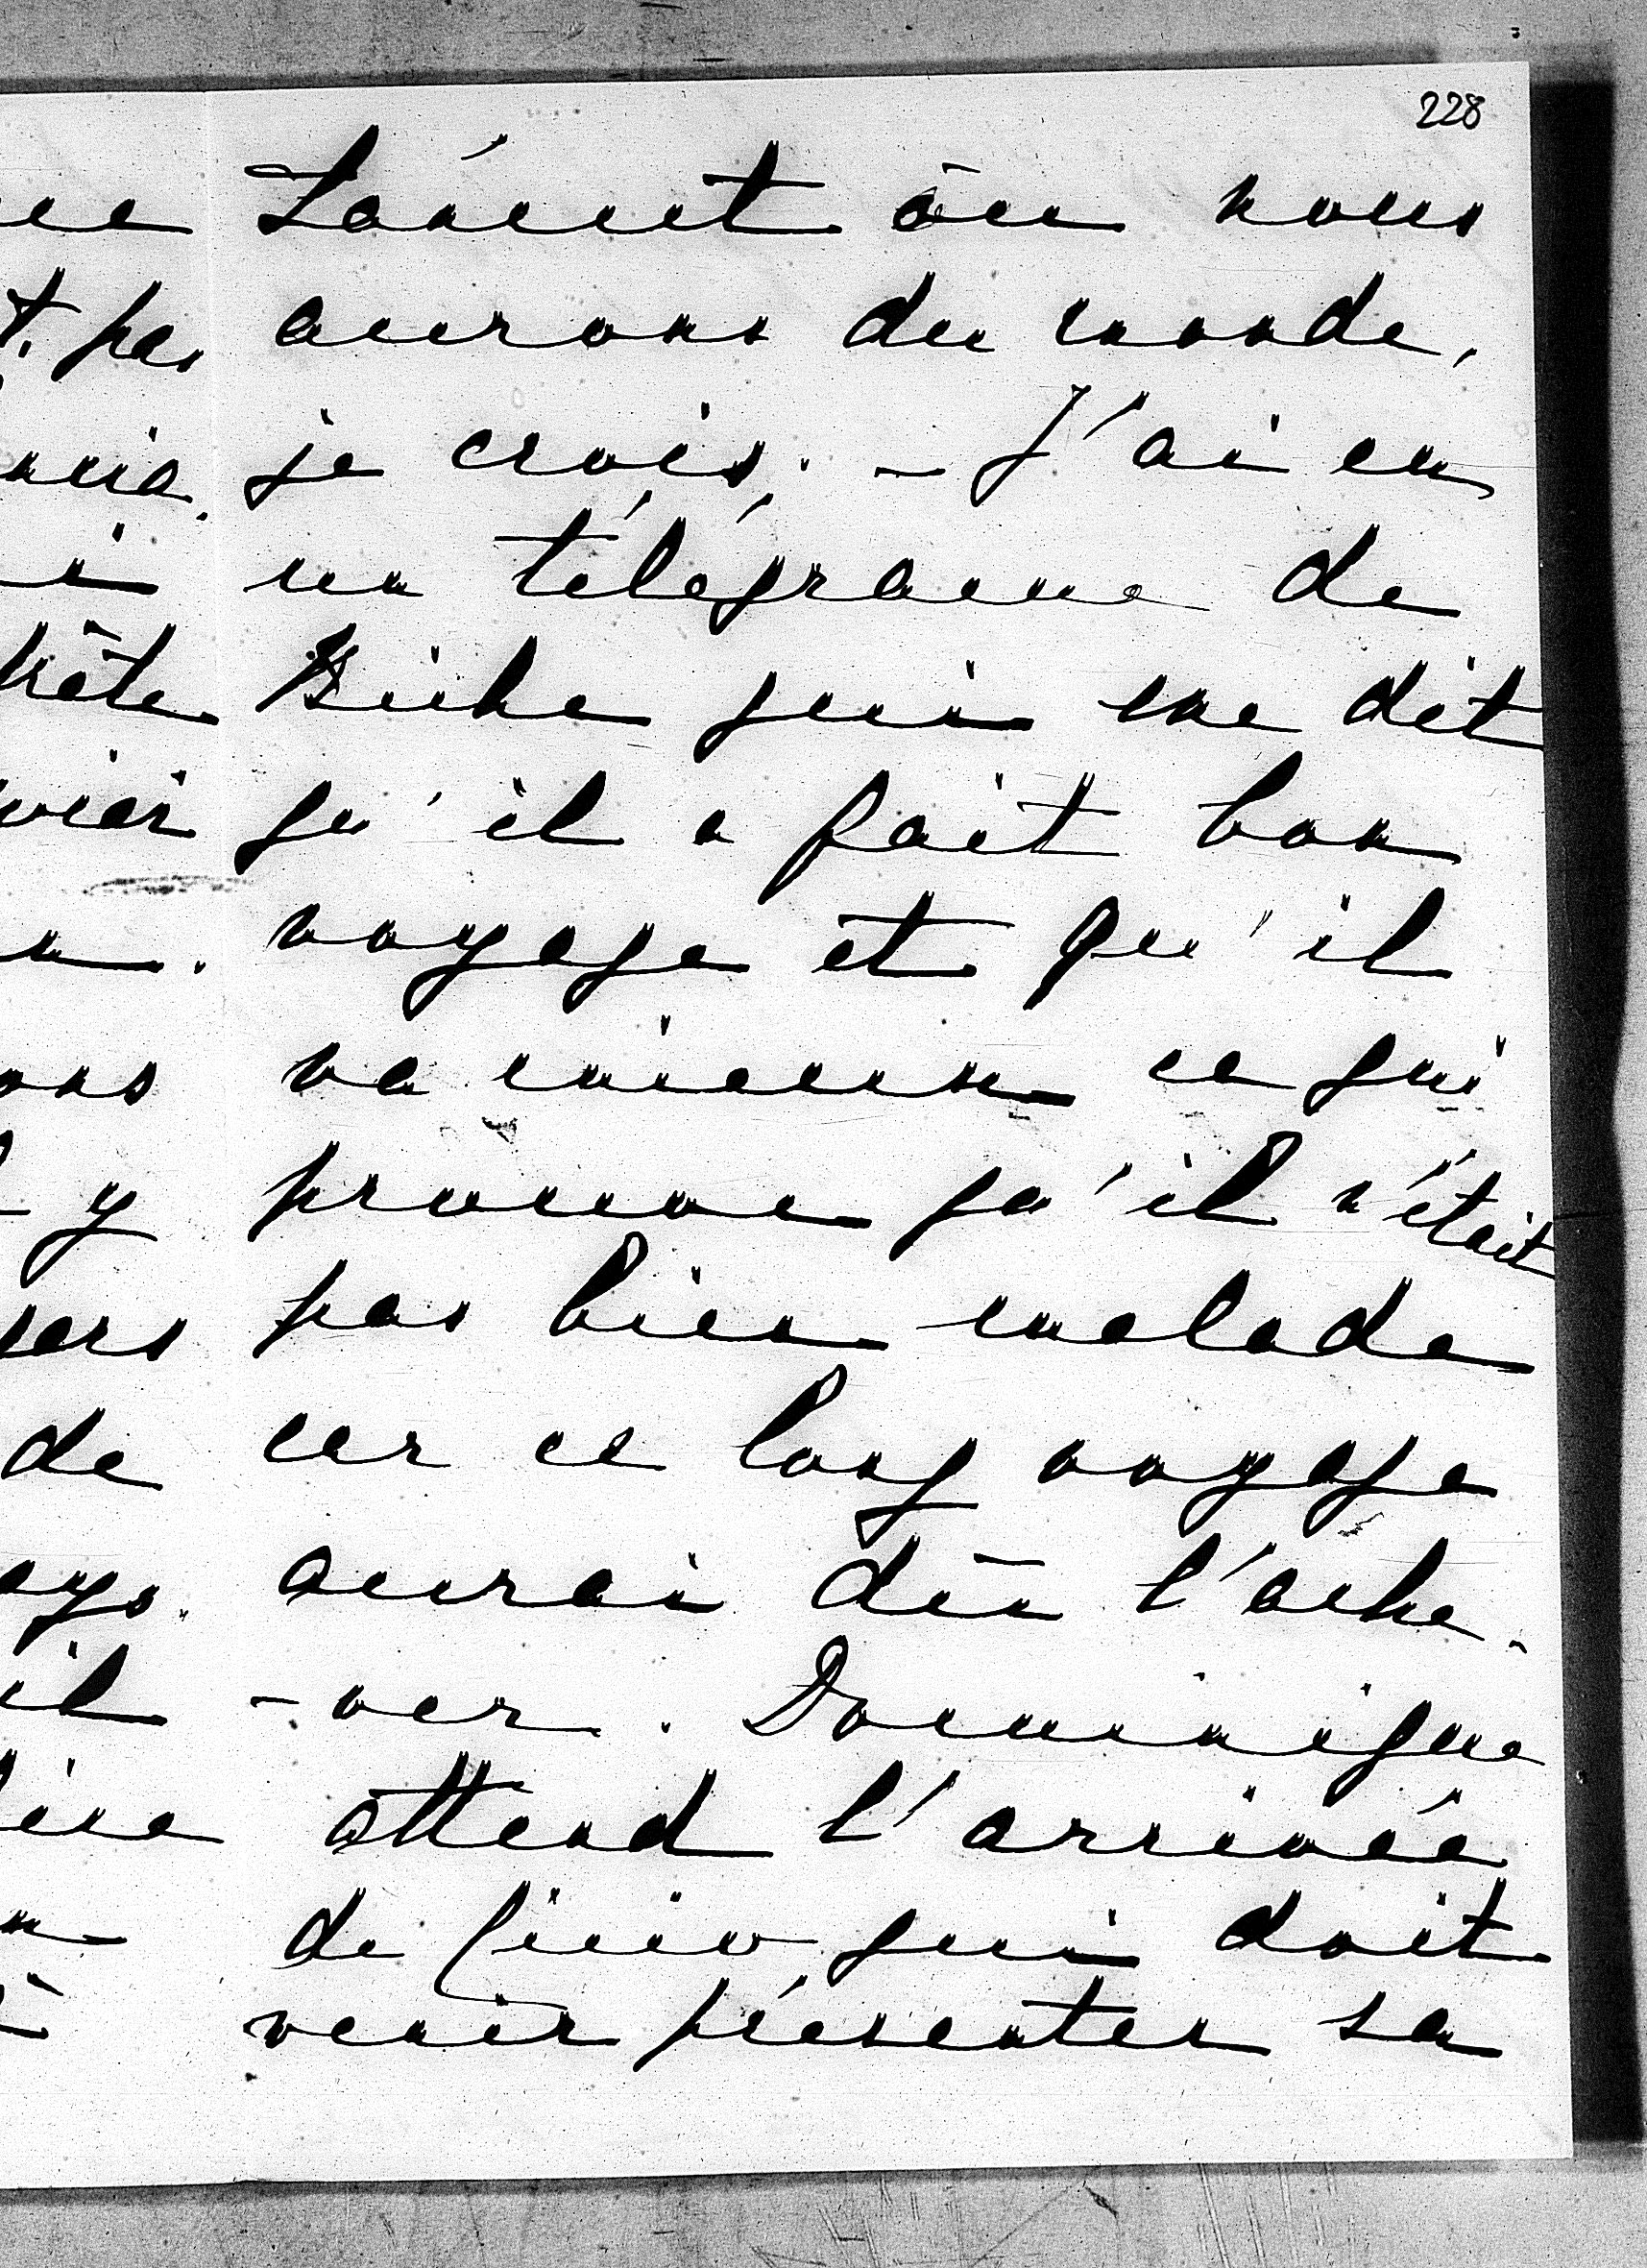 228
où nous
aurons du monde,
je crois. – J'ai eu
un télégramme de
Biche qui me dit
qu'il a fait bon
voyage et qu'il
va mieux ce qui
prouve qu'il n'était
pas bien malade
car ce long voyage
aurai dû l'ache-
-ver. Dominique
attend l'arrivée
de qui doit
venir présenter sa
pas
de
il
y